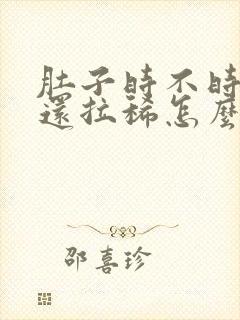 肚子時不時
還拉稀怎麼
邵喜珍